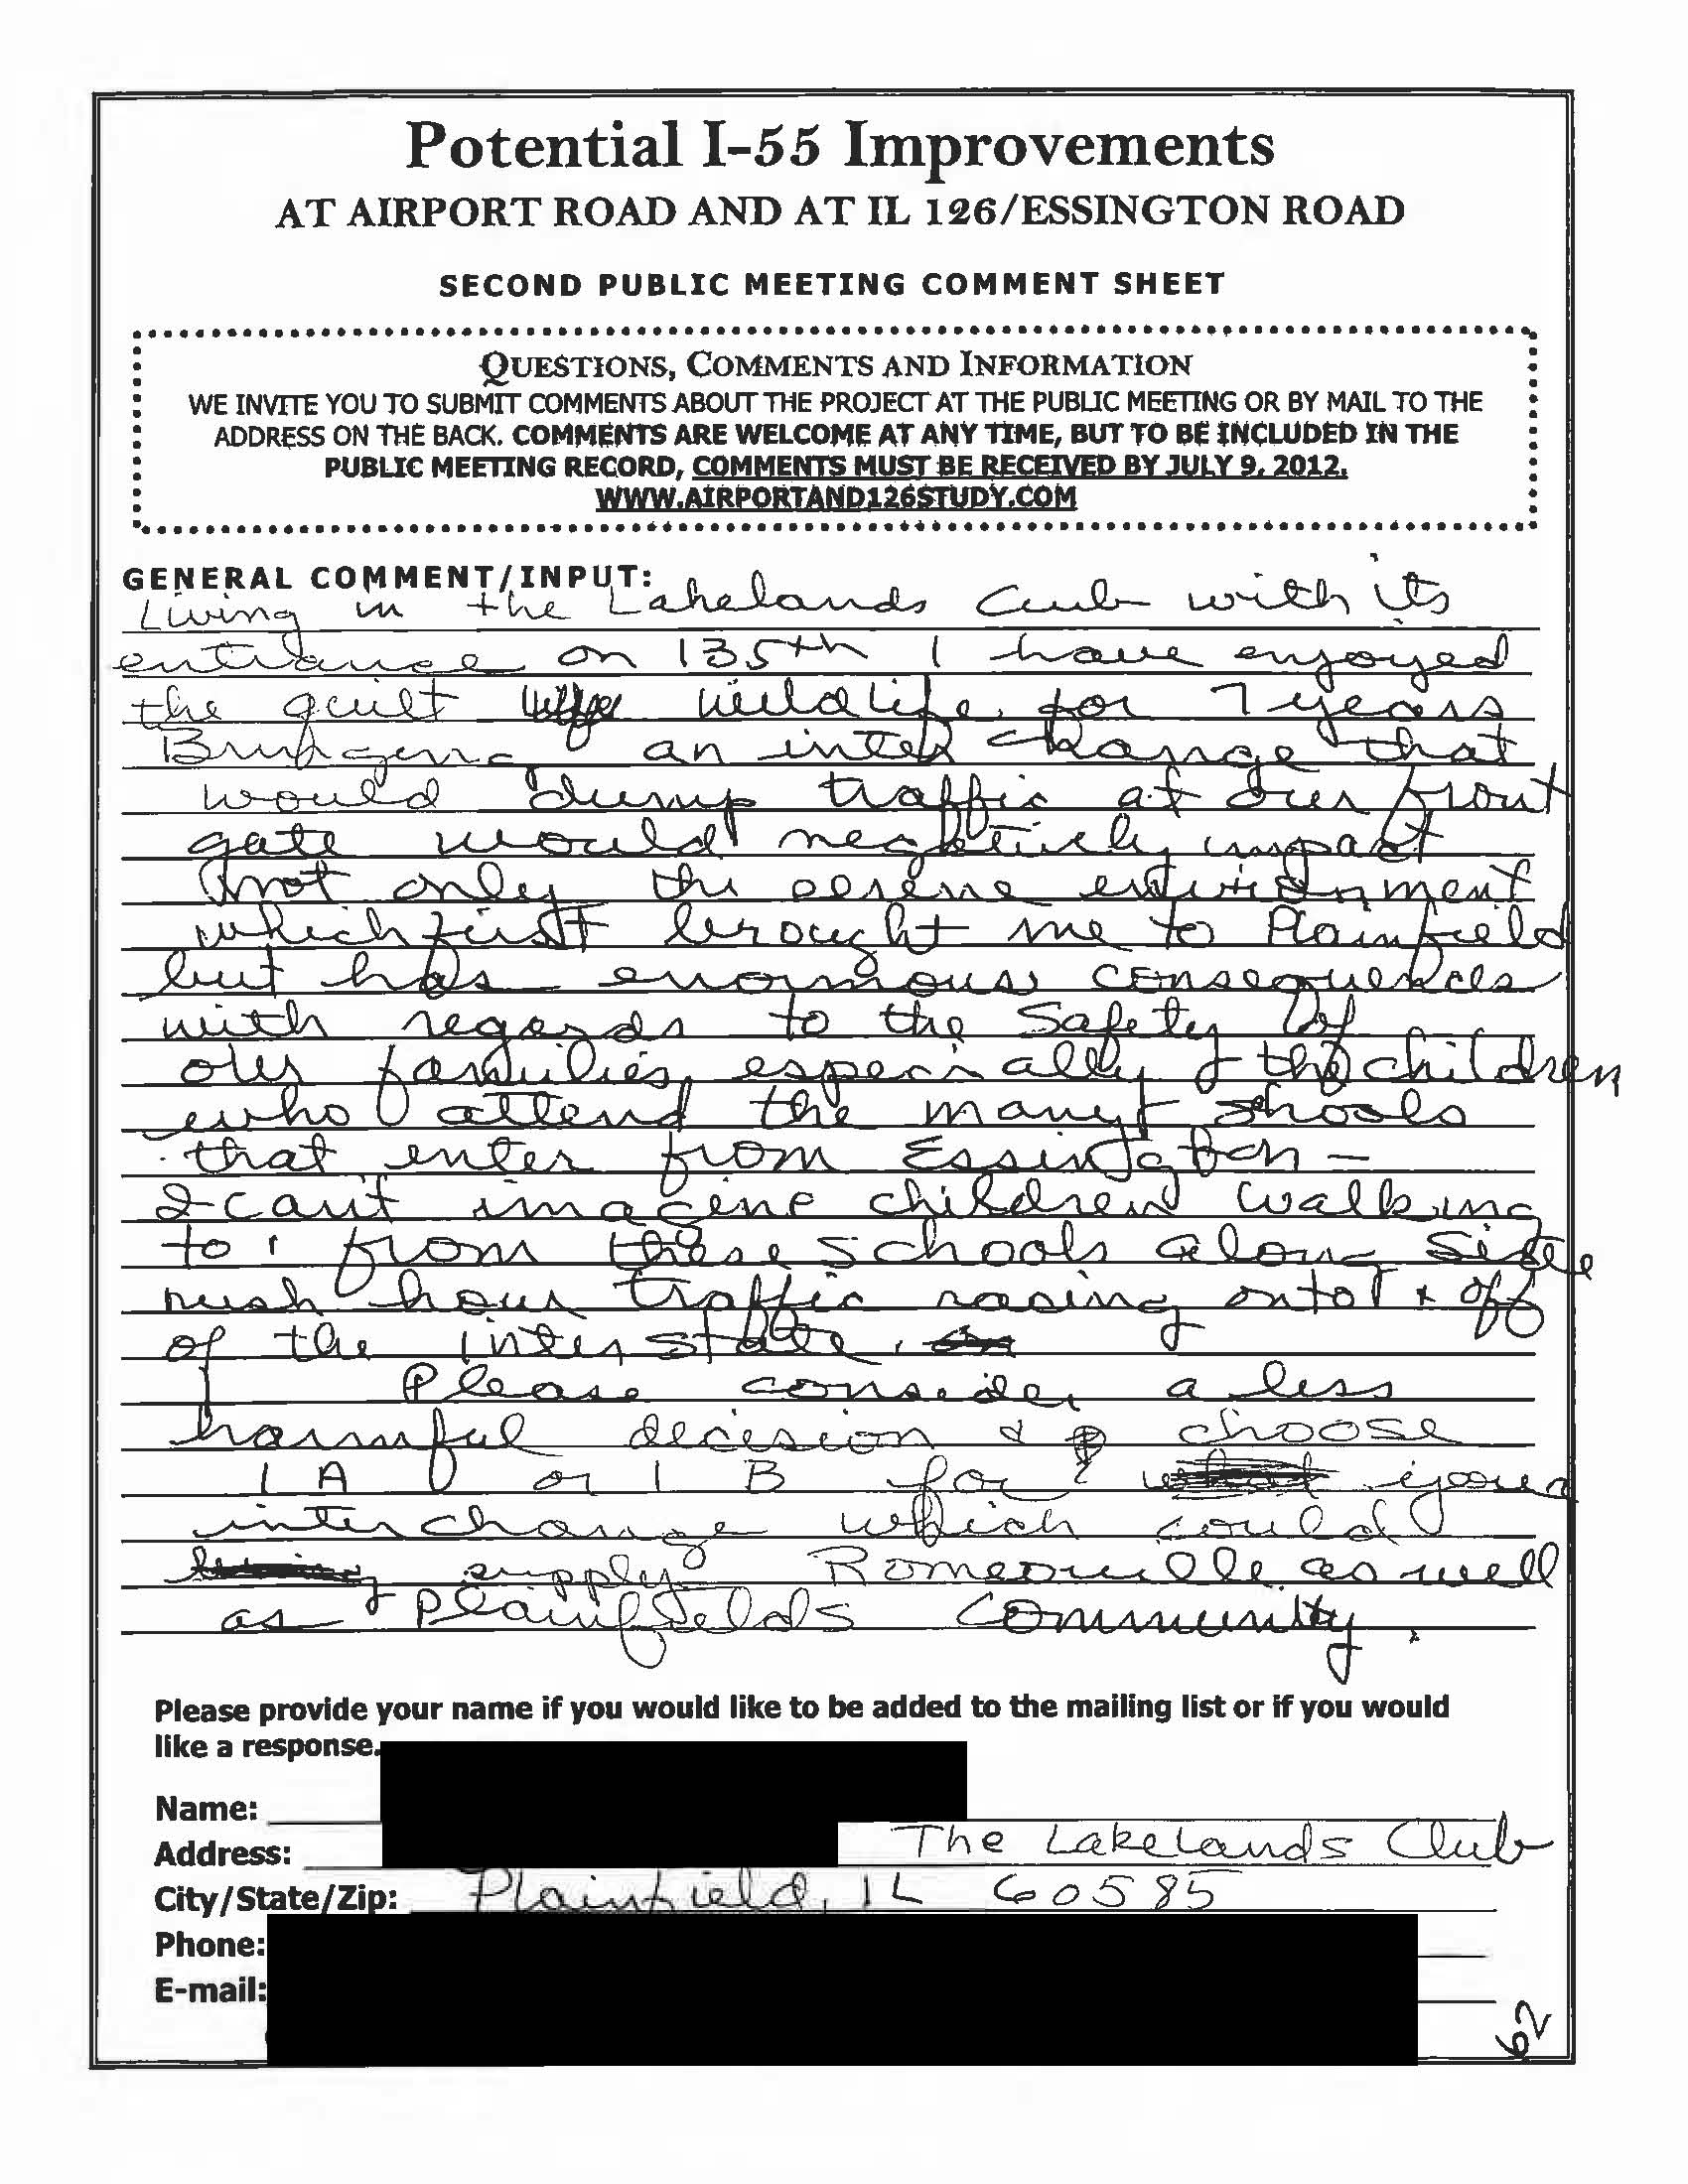 Potential I-55 Improvements
AT AIRPORT ROAD AND AT IL 126/ESSINGTON ROAD
SECOND PUBLIC MEETING COMMENT SHEET
QUESTIONS, COMMENTS AND INFORMATION
WE INVITE YOU TO SUBMIT COMMENTS ABOUT THE PROJECT AT THE PUBLIC MEETING OR BY MAIL TO THE
ADDRESS ON THE BACK. COMMENTS ARE WELCOME AT ANY TIME, BUT TO BE INCLUDED IN THE
PUBLIC MEETING RECORD, COMMENTS MUST BE RECEIVED BY JULY 9, 2012.
WWW.AIRPORTAND126STUDY.COM
GENERAL COMMENT/INPUT:
Living in the Lakelands Club with its
entrance on 135th I have enjoyed
the quilt wildlife for 7 years
Bringing an interchange that
would dump traffic at our front
gate would negitively impact
not only the serene enviornment
which first brought me to Plainfield
but has enormous consequences
with regards to the safety of
our families especially the children
who attend the many schools
that enter from Essington -
I can't imagine children walking
to & from these schools along side
rush hour traffic racing onto & off
of the interstate.
Please consider a less
harmful decision & choose
1A or 1B for your
interchange which could
supply Romeoville as well
as Plainfields community.
Please provide your name if you would like to be added to the mailing list or if you would
like a response.
Name:
Address: The Lakelands Club
City/State/Zip: Plainfield, IL 60585
Phone:
E-mail:
62